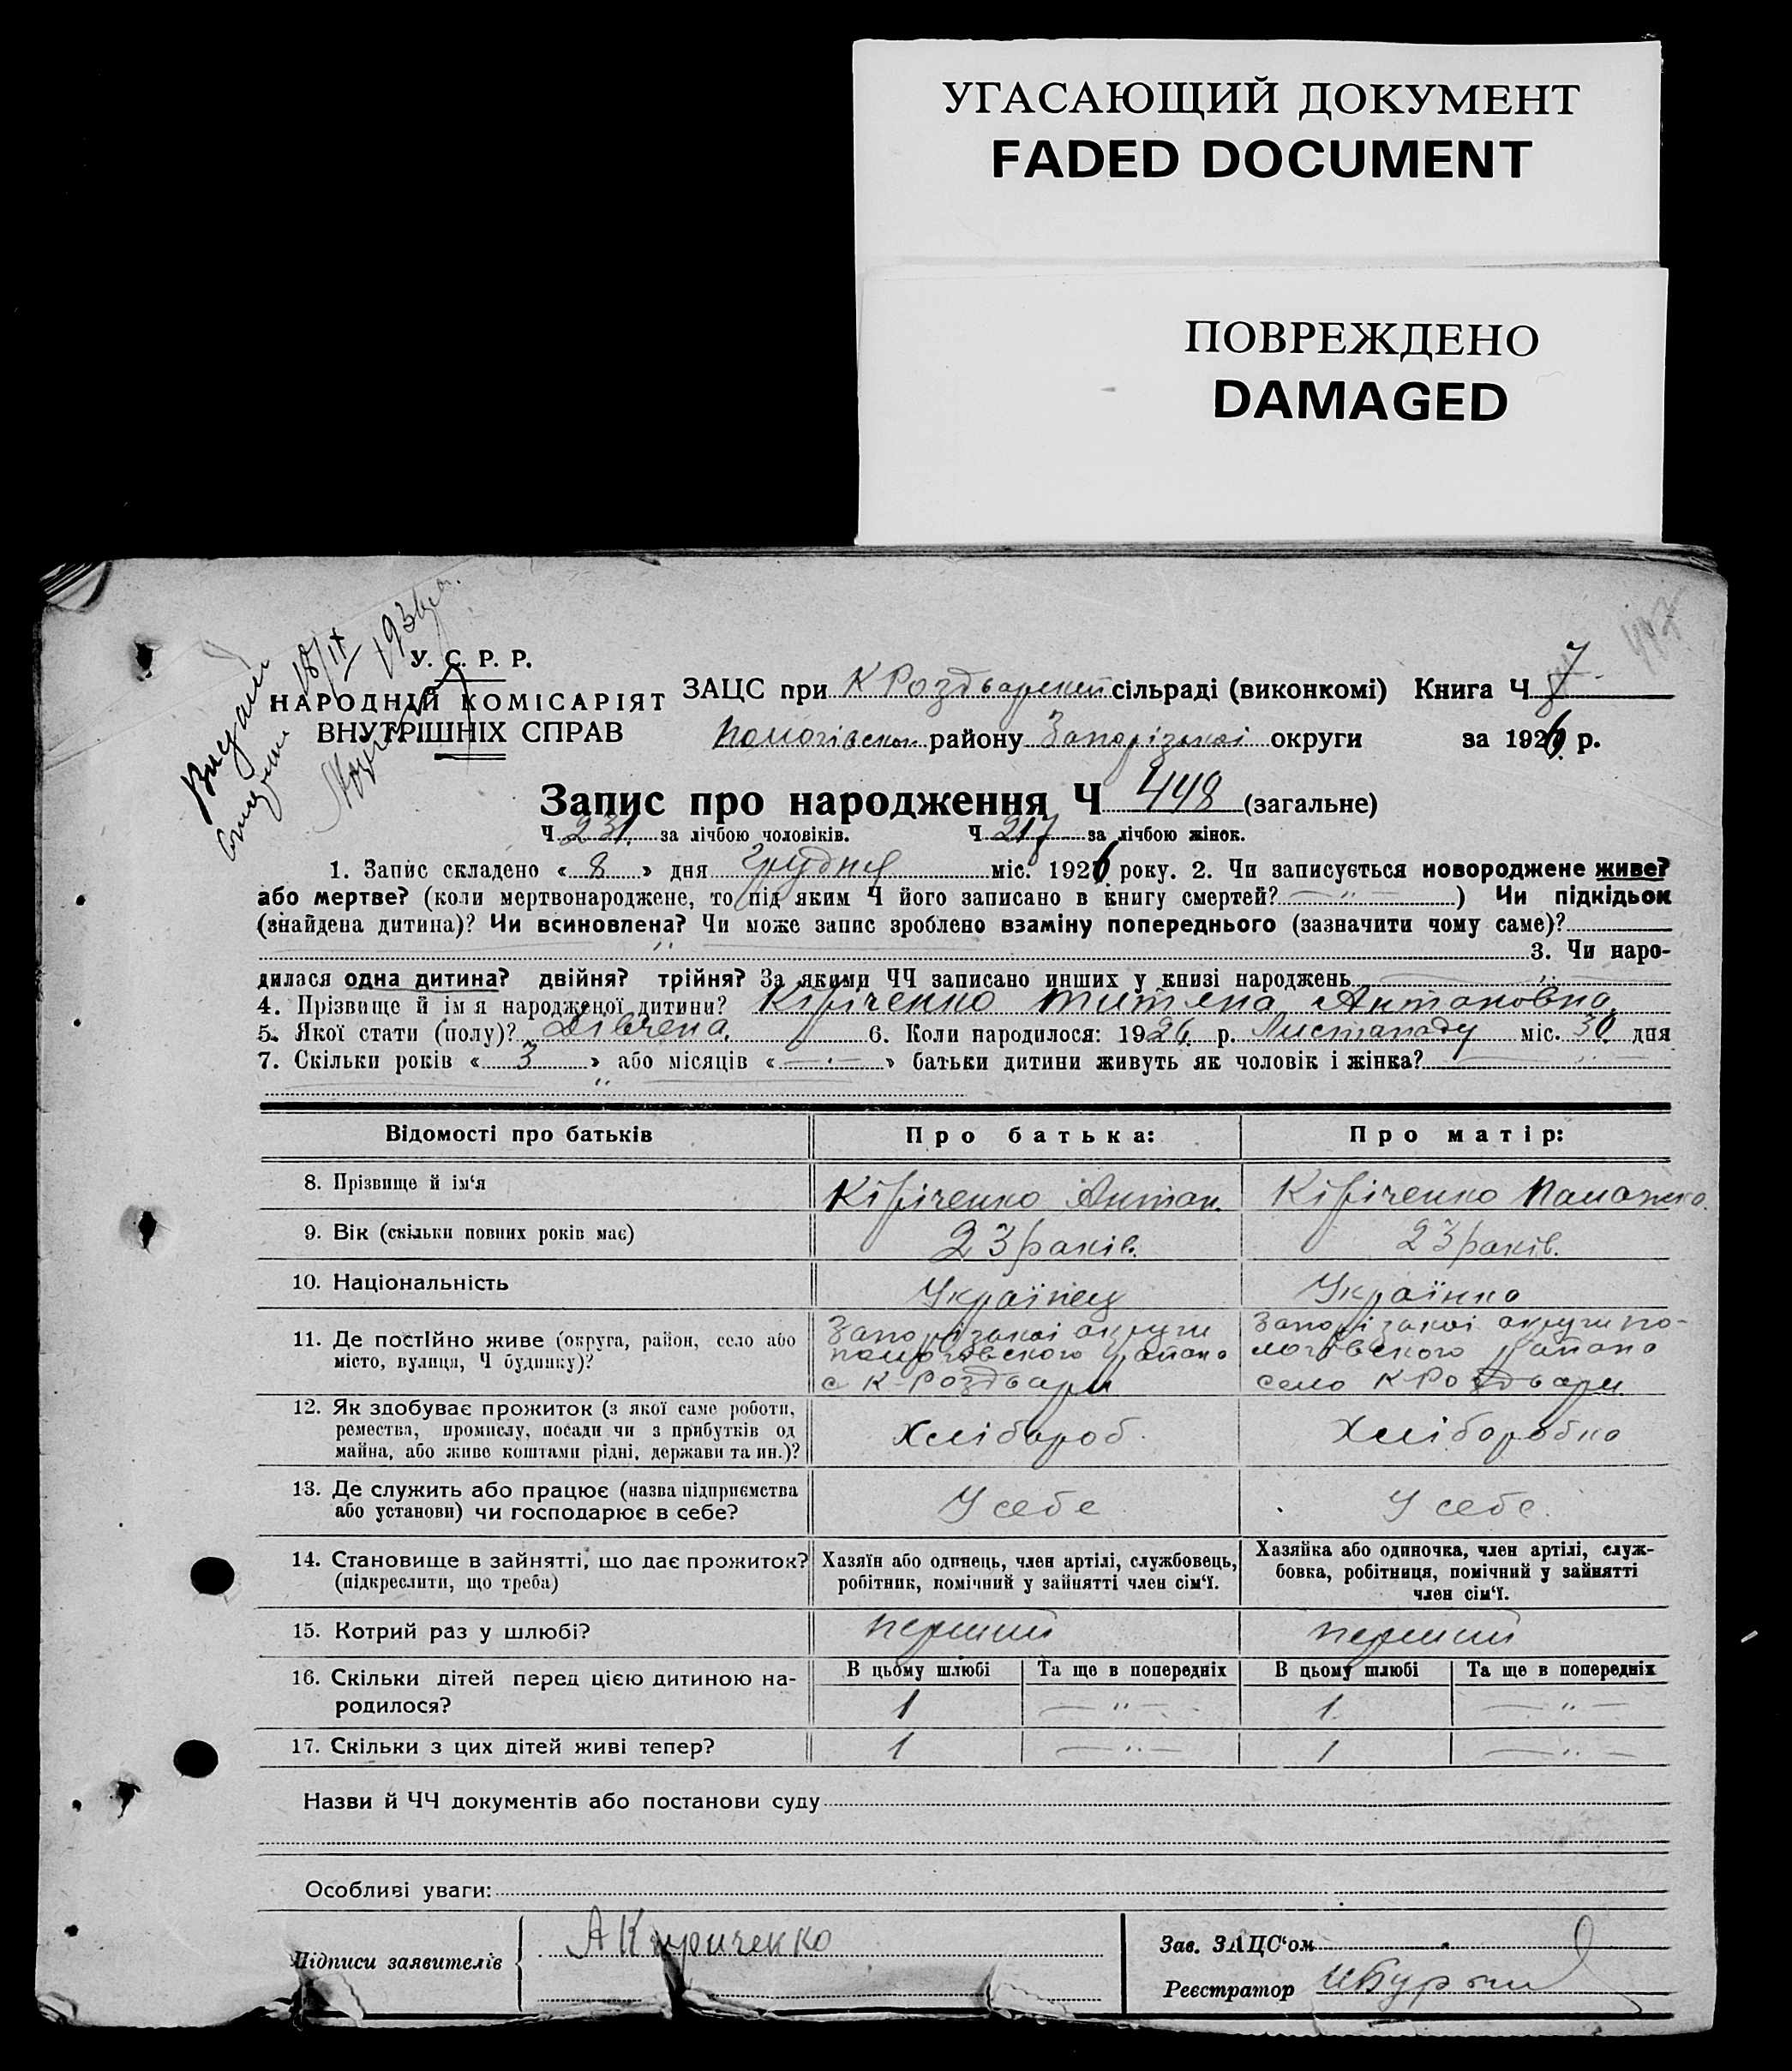 УГАСАЮЩИЙ ДОКУМЕНТ
FADED DOCUMENT
ПОВРЕЖДЕНО
DAMAGED
18/IX 193
У. С. Р. Р.
НАРОДНІЙ КОМІСАРІЯТ
ВНУТРІШНІХ СПРАВ
ЗАЦС при К Роздварской сільраді (виконкомі) Книга Ч 7
Пологівском району Запорізькоі округи за 1926 р.
Запис про народження Ч 448 (загальне)
Ч 231. за лічбою чоловіків. Ч 217 за лічбою жінок.
1. Запис складено « 8 » дня Грудня міс. 1926 року. 2. Чи записується новороджене живе?
або мертве? (коли мертвонароджене, то під яким Ч його записано в книгу смертей? — " — ) Чи підкідьок
(знайдена дитина)? Чи всиновлена? Чи може запис зроблено взаміну попереднього (зазначити чому саме)?
— " — 3. Чи наро-
дилася одна дитина? двійня? трійня? За якими ЧЧ записано инших у книзі народжень — " —
4. Прізвище й ім я народженої дитини? Кіріченко Антоновна
5. Якої стати (полу)? Дівчена. 6. Коли народилося: 1926 р. Листападу міс. 30 дня
7. Скільки років « 3 » або місяців « — · — » батьки дитини живуть як чоловік і жінка? — " —
— " —
Відомості про батьків Про батька: Про матір:
8. Прізвище й ім'я Кіріченко Антон. Кіріченко
9. Вік (скільки повних років має) 23 раків. 23 раків.
10. Національність Українец Українка
11. Де постІйно живе (округа, район, село або Запорізькоі округи Запорізькоі округи по-
місто, вулиця, Ч будинку)? пологовского района логовского района
с К-Роздвари село К Роздвари
12. Як здобуває прожиток (з якої саме роботи,
ремества, промислу, посади чи з прибутків од Хлібороб. Хліборобка
майна, або живе коштами рідні, держави та ин.)?
13. Де служить або працює (назва підприємства У себе У себе.
або установи) чи господарює в себе?
14. Становище в зайнятті, що дає прожиток? Хазяїн або одинець, член артілі, службовець, Хазяйка або одиночка, член артілі, служ-
(підкреслити, що треба) робітник, помічний у зайнятті член сім'ї. бовка, робітниця, помічний у зайнятті
член сім'ї.
15. Котрий раз у шлюбі? перший перший
16. Скільки дітей перед цією дитиною на- В цьому шлюбі Та ще в попередніх В цьому шлюбі Та ще в попередніх
родилося? 1 — " — 1. — " —
17. Скільки з цих дітей живі тепер? 1 — " — 1 — " —
Назви й ЧЧ документів або постанови суду
Особливі уваги:
Підписи заявителів А Кириченко Зав. ЗАЦС'ом
Реєстратор